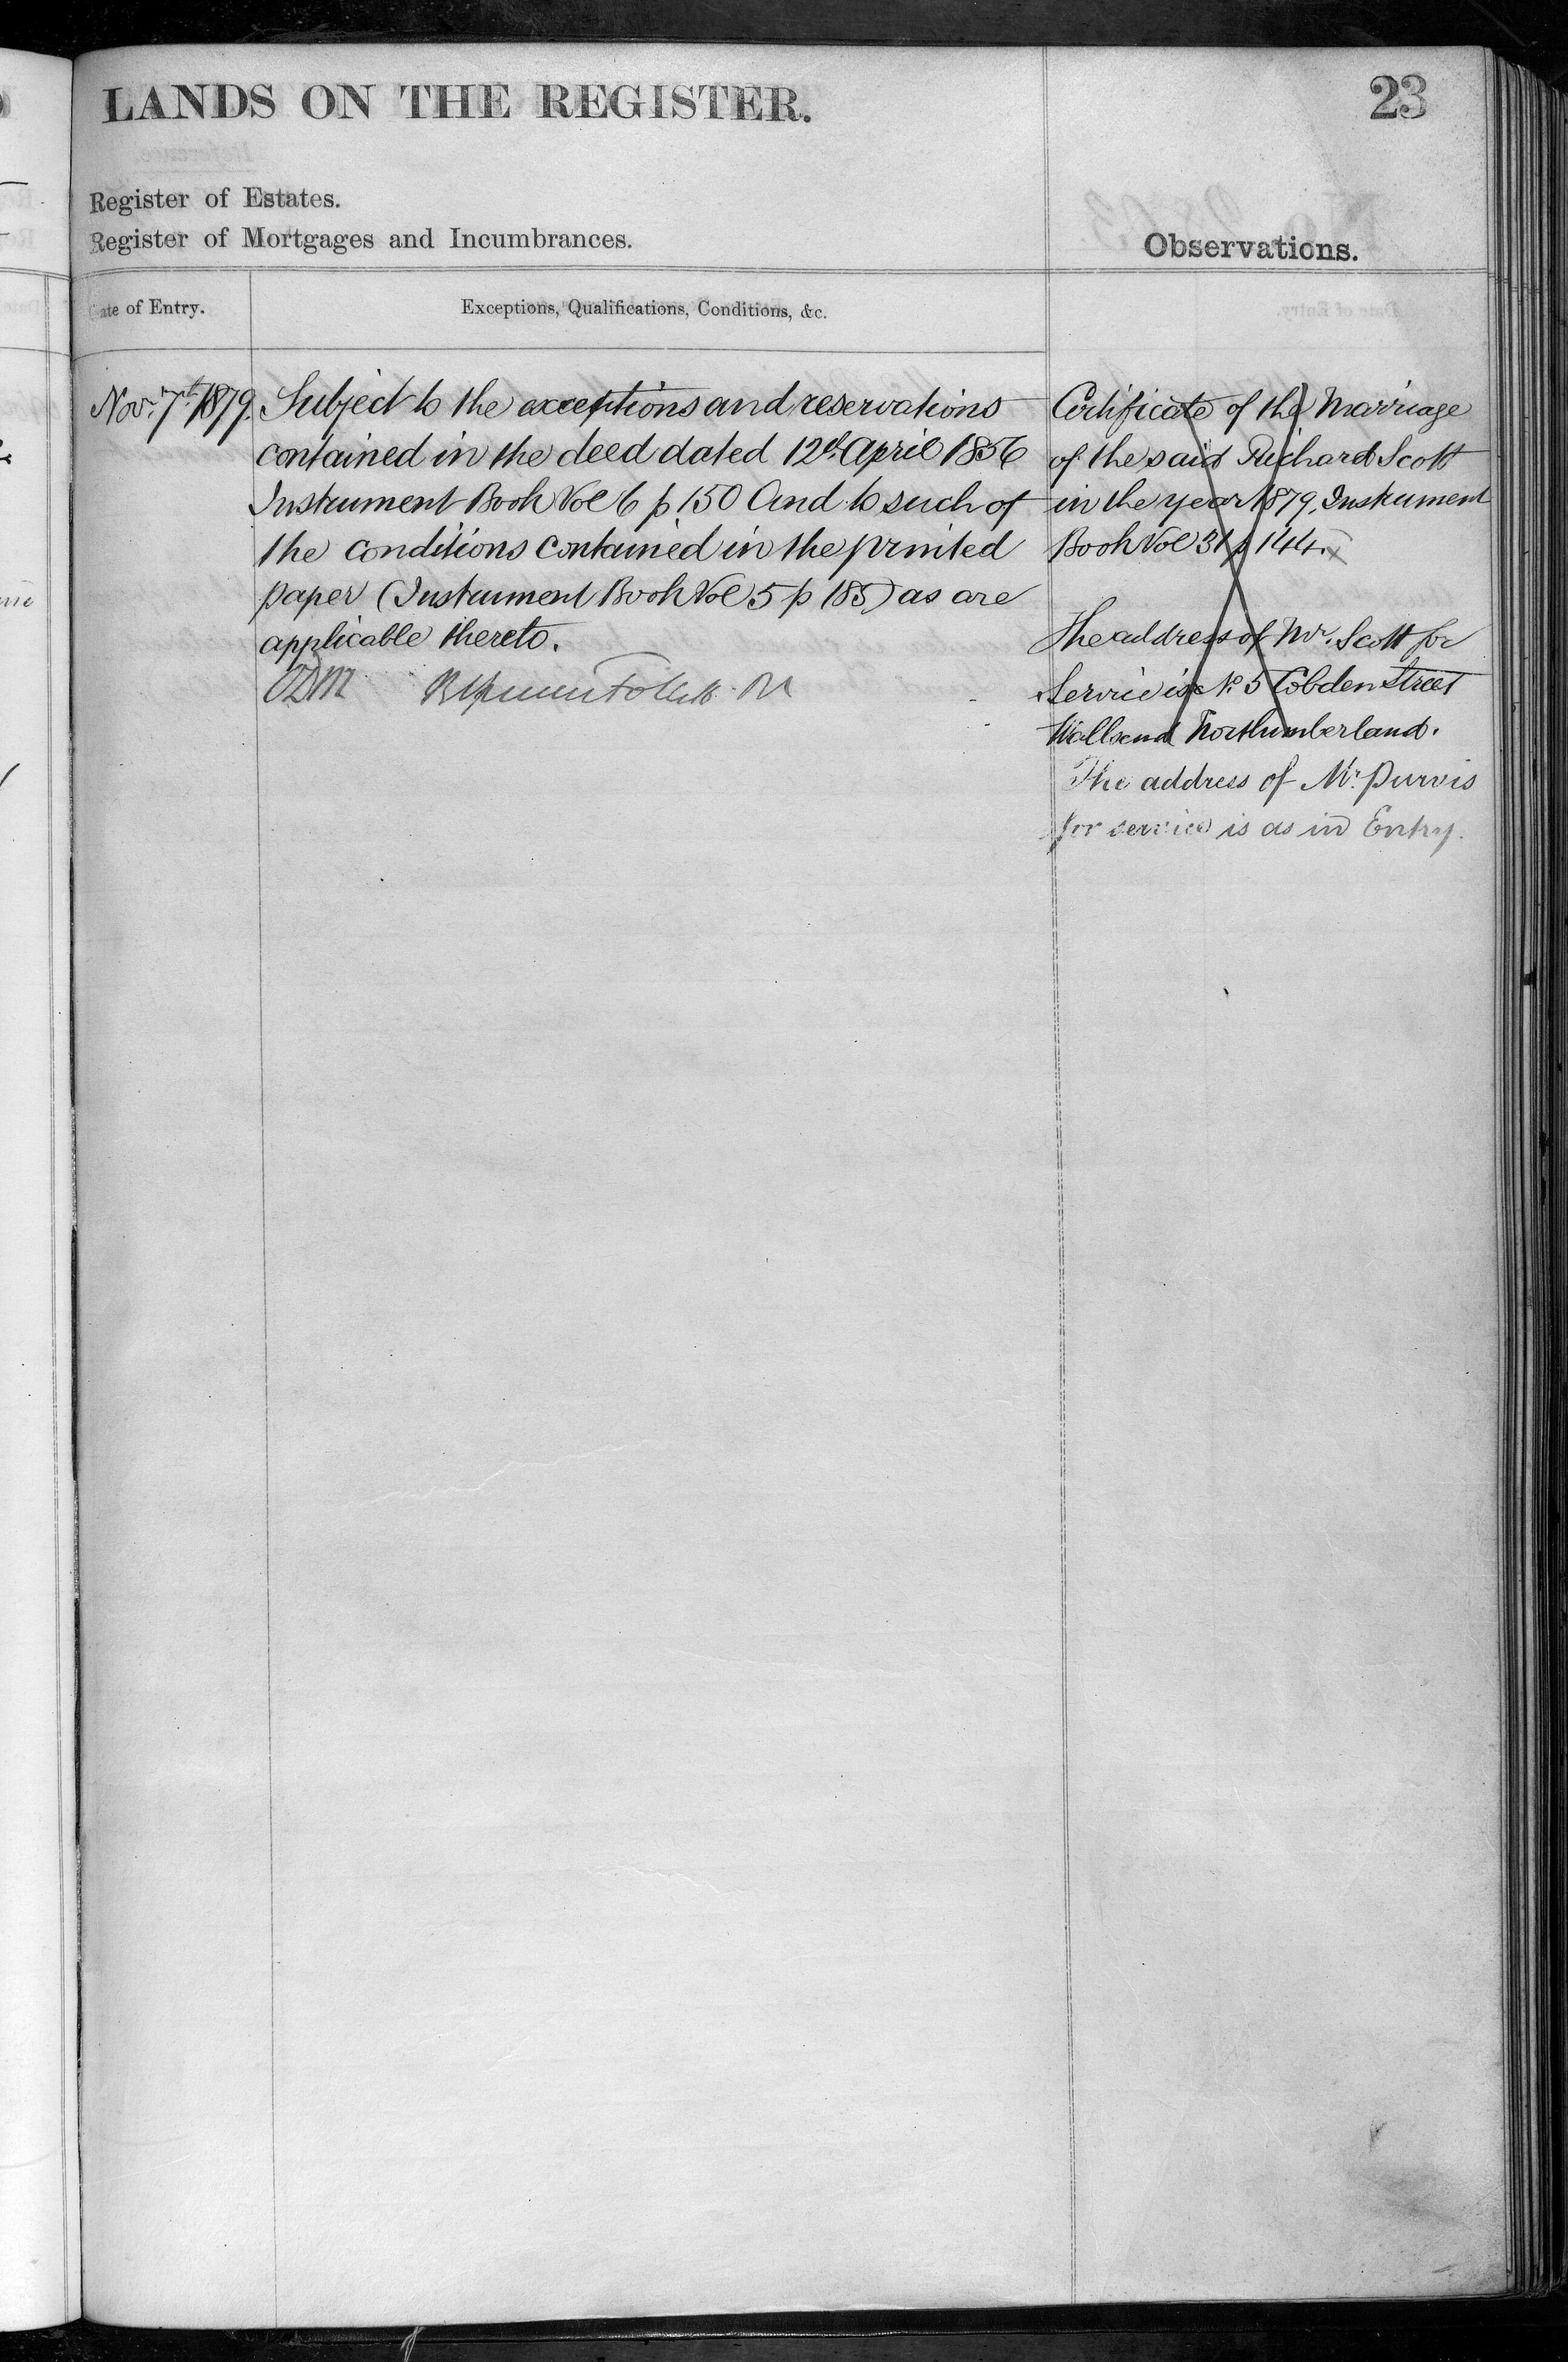 LANDS ON THE REGISTER.
23
Register of Estates.
Register of Mortgages and Incumbrances.
Observations.
ate of Entry.
Exceptions, Qualifications, Conditions, &c.
Novr. 7th 1879.
Subject to the exceptions and reservations
contained in the deed dated 12th April 1856
Instrument Book Vol 6 p 150 And to such of
the conditions contained in the printed
paper (Instrument Book Vol 5 p 185) as are
applicable thereto.
Certificate of the Marriage
of the said Richard Scott
in the year 1879, Instrument
Book Vol 31 p 144.
The address of Mr. Scott for
Service is No. 5 Cobden Street
Wallsend Northumberland.
The address of Mr. Purvis
for service is as in Entry.